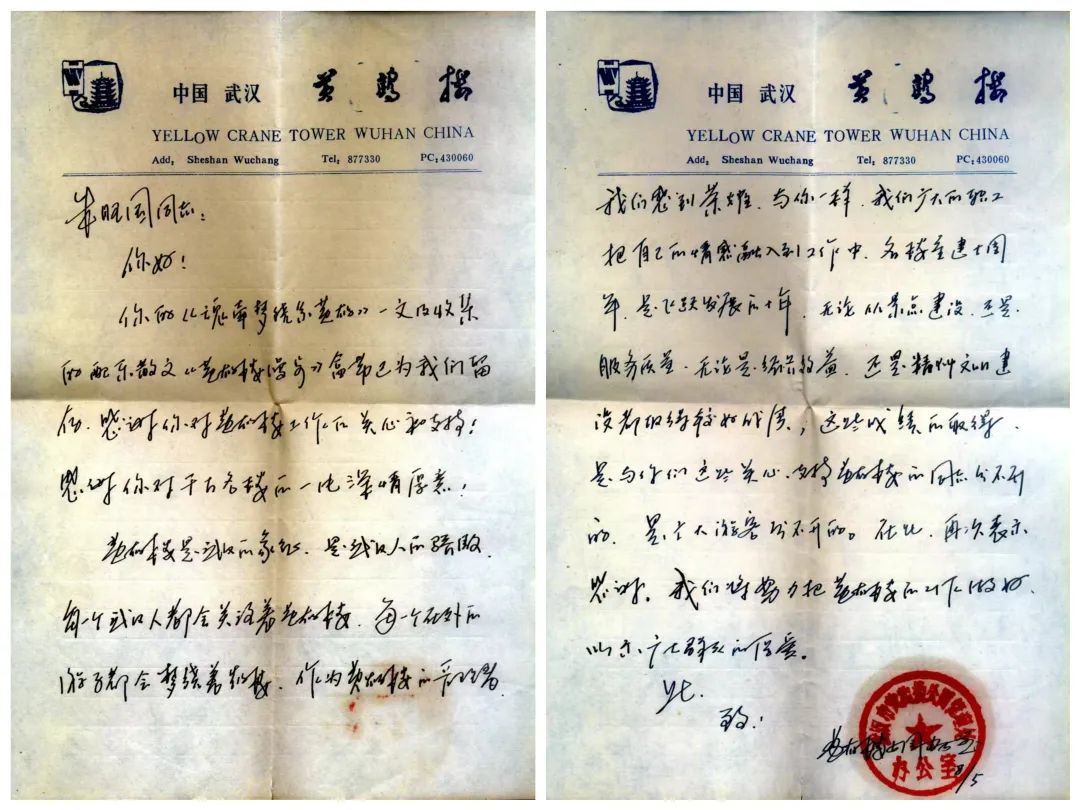 中国 武汉 黄鹤楼
YELLOW CRANE TOWER WUHAN CHINA
Add: Sheshan Wuchang Tel: 877330 PC:430060
朱旺国同志:
你好!
你的《魂牵梦绕系黄鹤》一文及收集
的配乐散文《黄鹤楼》盒带已为我们留
存.感谢你对黄鹤楼工作的关心和支持!
感谢你对千古名楼的一片深情厚意!
黄鹤楼是武汉的象征.是武汉人的骄傲.
每一个武汉人都会关注着黄鹤楼.每一个在外的
游子都会梦绕着黄鹤楼.作为黄鹤楼的管理者.
中国 武汉 黄鹤楼
YELLOW CRANE TOWER WUHAN CHINA
Add: Sheshan Wuchang Tel: 877330 PC:430060
我们感到荣耀.与你一样.我们广大的职工
把自己的情感融入到工作中.名楼重建十周
年.是飞跃发展的十年.无论从景点建设.还是
服务质量.无论是经济效益.还是精神文明建
设都取得较好成绩;这些成绩的取得.
是与你们这些关心.支持黄鹤楼的同志分不开
的.是广大游客分不开的。在此.再次表示
感谢。我们将努力把黄鹤楼的工作做好.
以示广大群众的厚爱。
此.
致!
办公室
8/5